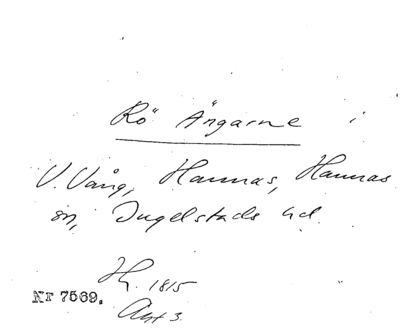 Rö Ängarne i
V. Vång, Hannas, Hannas
sn, Ingelstads hd.
H. 1815
Nr 7569.
Akt 3.